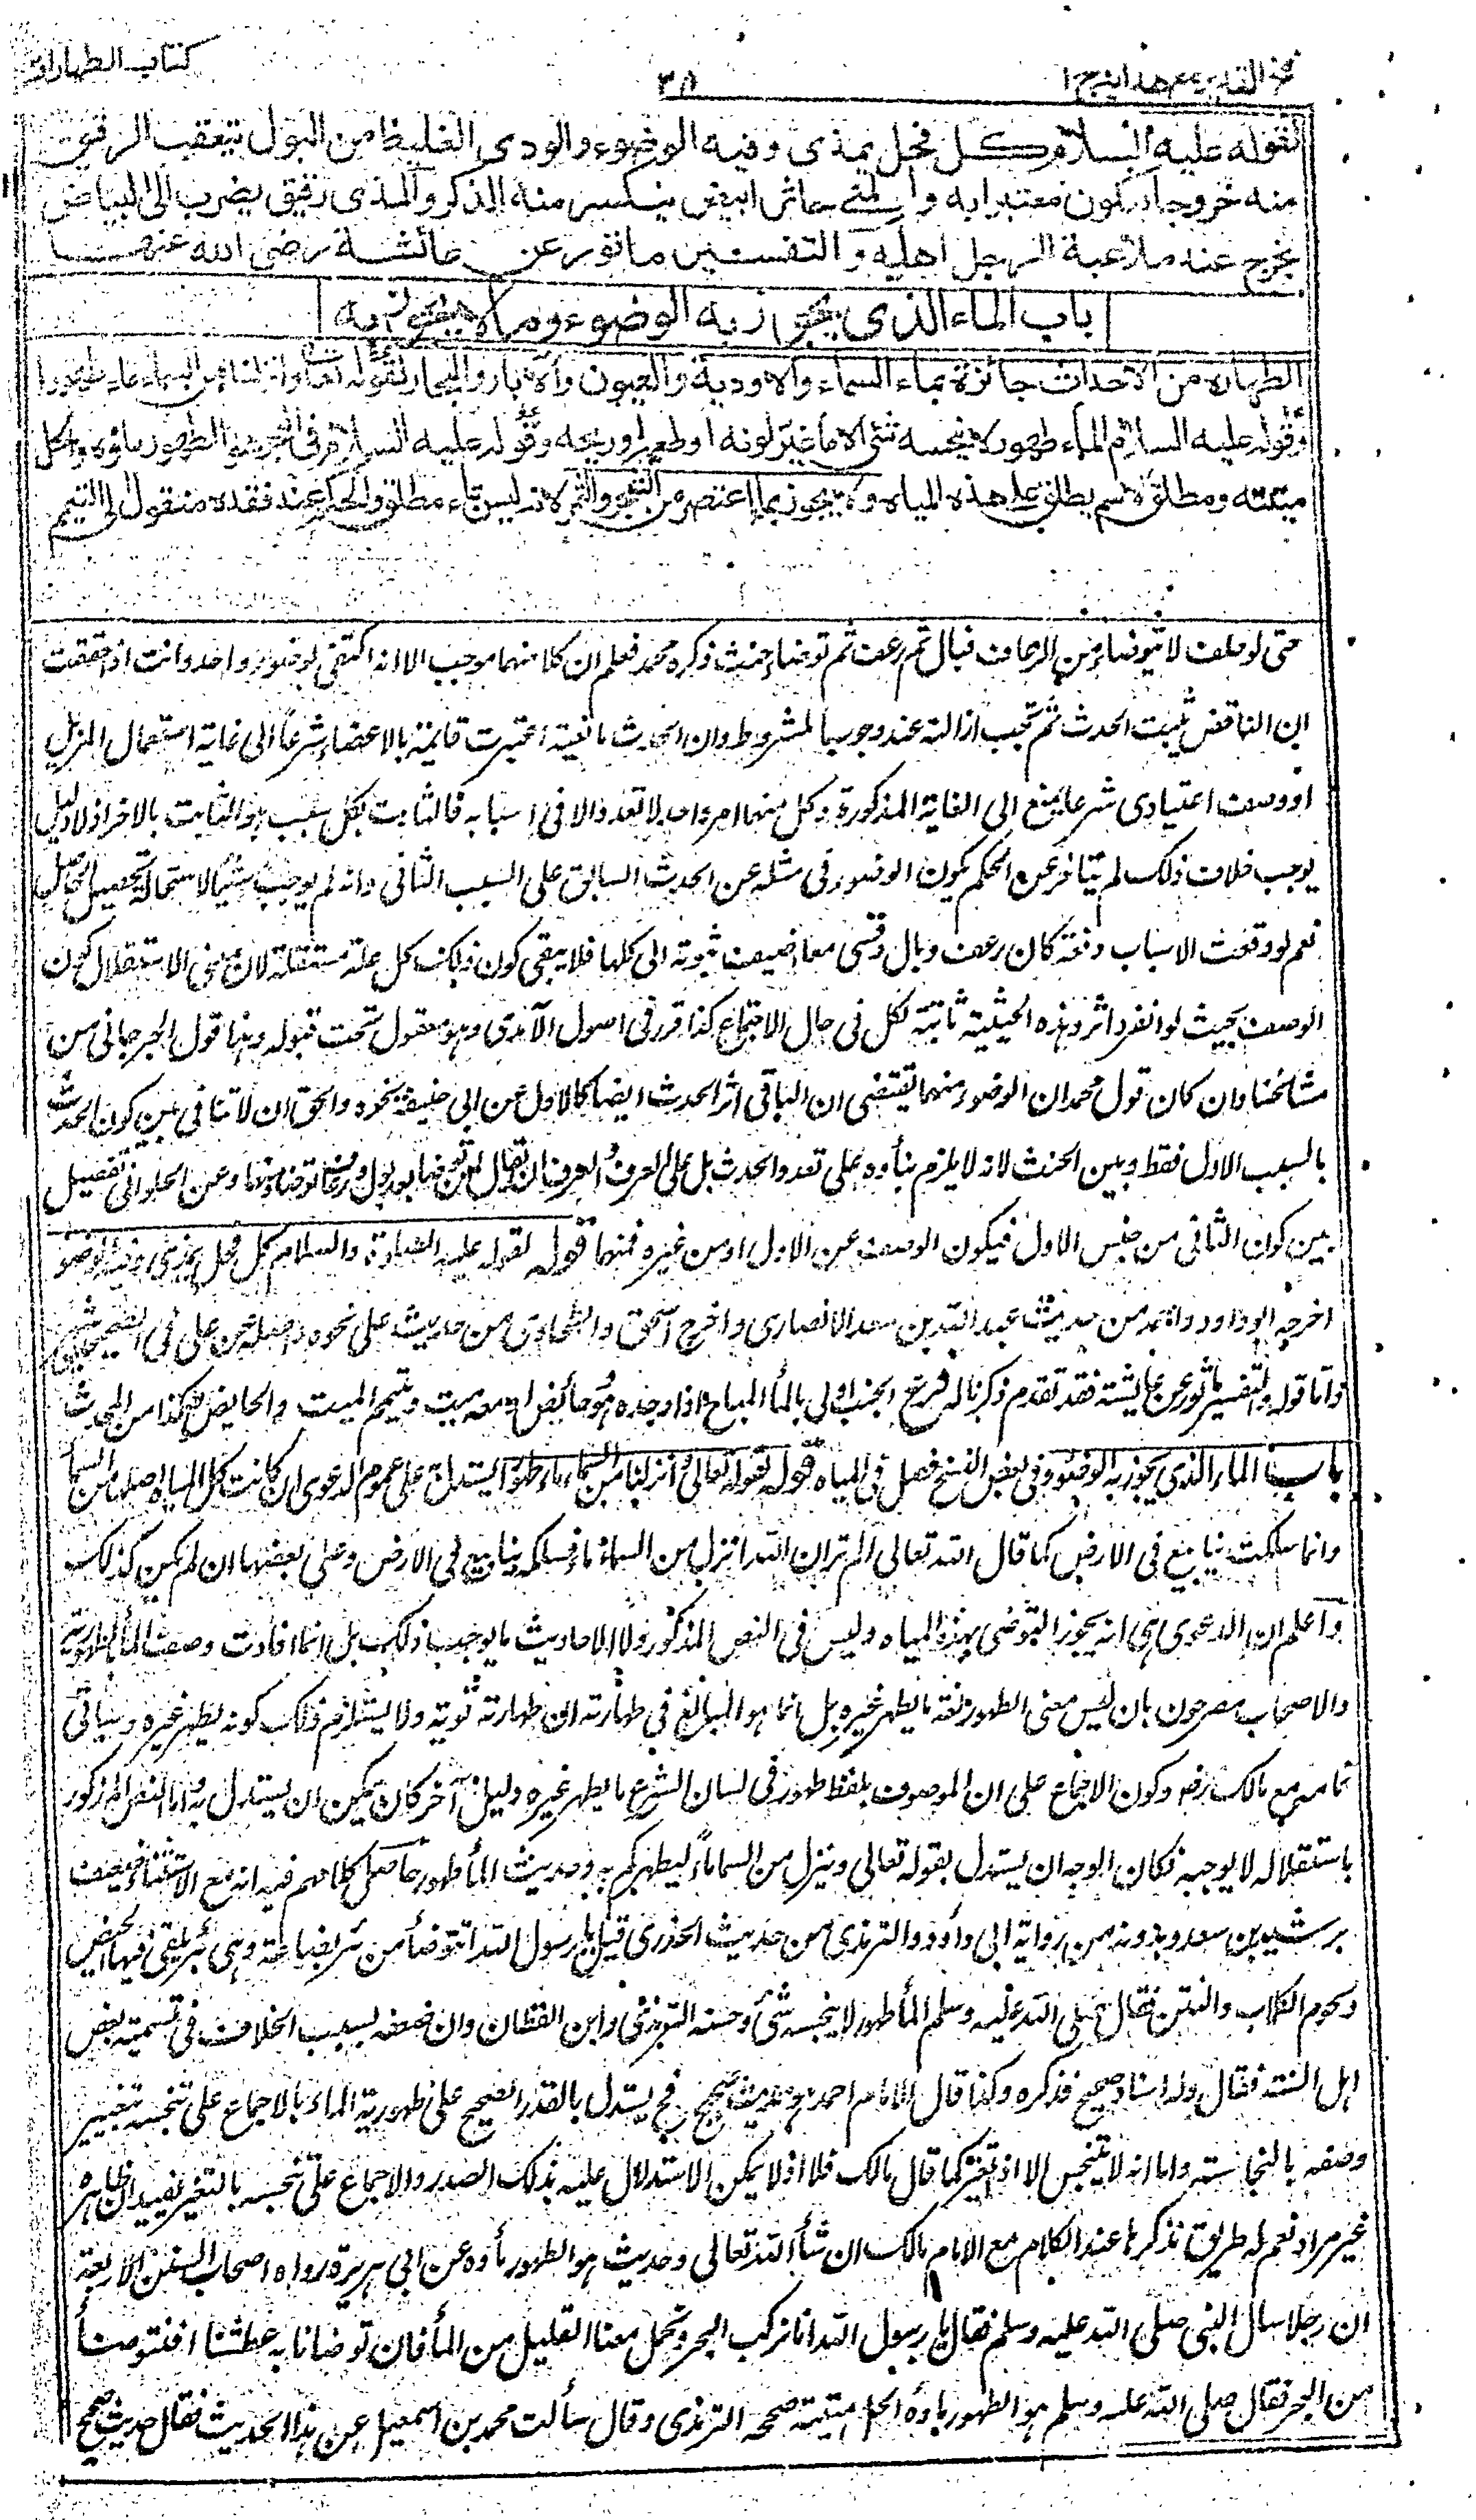 فتح القدير مع هداية ج ١
٣٨
كتاب الطهارات
لقوله عليه السلام كل فحل يمذي وفيه الوضوء والودي الغليظ من البول يتعقب الرقيق
منه خروجا فيكون معتبرا به والمني خاثر ابيض ينكسر منه الذكر والمذي رقيق يضرب الى البياض
يخرج عند ملاعبة الرجل اهله والتفسير ماثور عن عائشة رضي الله عنها
باب الماء الذي يجوز به الوضوء وما لا يجوز به
الطهارة من الاحداث جائزة بماء السماء والاودية والعيون والآبار والبحار لقوله تعالى وانزلنا من السماء ماء طهورا
وقوله عليه السلام الماء طهور لا ينجسه شئ الا ما غير لونه او طعمه او ريحه وقوله عليه السلام في البحر هو الطهور ماؤه والحل
ميتته ومطلق الاسم يطلق على هذه المياه ولا يجوز بما اعتصر من الشجر والثمر لانه ليس بماء مطلق والحكم عند فقده منقول الى التيمم
حتى لو حلف لا يتوضأ من الرعاف فبال ثم رعف ثم توضأ حنث ذكره محمد فعلم ان كلا منهما موجب الا انه اكتفى بوضوء واحد وانت اذا حققت
ان الناقض يثبت الحدث ثم تجب ازالته عند وجوب المشروط وان الحدث مانعية اعتبرت قائمة بالاعضاء شرعا الى غاية استعمال المزيل
او وصف اعتباري شرعا يمنع الى الغاية المذكورة وكل منهما امر واحد لا تعدد الا في اسبابه فالثابت بكل سبب هو الثابت بالآخر اذ لا دليل
يوجب خلاف ذلك لم يتأخر عن الحكم بكون الوضوء في مثله عن الحدث السابق على السبب الثاني وانه لم يوجب شيئا لاستحالة تحصيل الحاصل
نعم لو وقعت الاسباب دفعة كان رعف وبال وقسى معا اضيف ثبوته الى كلها فلا ينفي كون ذلك كل علة مستقلة لان معنى الاستقلال كون
الوصف بحيث لو انفرد اثر وهذه الحيثية ثابتة لكل في حال الاجتماع كذا قرر في اصول الآمدي وهو معقول يجب قبوله وهذا قول الجرجاني من
مشائخنا وان كان قول محمد ان الوضوء منهما يقتضي ان الباقي اثر الحدث ايضا كالاول عن ابي حنيفة نحوه والحق ان لا تنافي بين كون الحدث
بالسبب الاول فقط وبين الحنث لانه لا يلزم بناؤه على تعدد الحدث بل على العرف والعرف ان يقال لمن توضأ بعد بول ورعاف توضأ منهما وعن الحلواني تفصيل
بين كون الثاني من جنس الاول فيكون الوصف عن الاول او من غيره فمنهما قوله لقوله عليه الصلوة والسلام كل فحل يمذي وفيه الوضوء
اخرجه ابو داود واحمد من حديث عبد الله بن سعد الانصاري واخرج اسحق والطحاوي من حديث علي نحوه واصله عن علي في الصحيح
واما قوله والتفسير ماثور عن عائشة فقد تقدم ذكرنا له فرع الجنب اولى بالماء المباح اذا وجده هو وحائض او معه ميت ويتيمم الميت والحائض وكذا من المحدث
باب الماء الذي يجوز به الوضوء وفي بعض النسخ فصل في المياه قوله لقوله تعالى وانزلنا من السماء ماء طهورا يستدل به على عموم الدعوى ان كانت كل المياه اصلها من السماء
وانما سلكت ينابيع في الارض كما قال الله تعالى الم تر ان الله انزل من السماء ماء فسلكه ينابيع في الارض وعلى بعضها ان لم يكن كذلك
واعلم ان الدعوى هي انه يجوز التوضي بهذه المياه وليس في النص المذكور ولا الاحاديث ما يوجب ذلك بل انما افادت وصف الماء بالطهورية
والاصحاب مصرحون بان ليس معنى الطهور لغة ما يطهر غيره بل انما هو المبالغ في طهارته اي طهارته قوية ولا يستلزم ذلك كونه يطهر غيره وسيأتي
تمامه مع مالك رضه وكون الاجماع على ان الموصوف بلفظ طهور في لسان الشرع ما يطهر غيره دليل آخر كان يمكن ان يستدل به اما النص المذكور
باستقلاله لا يوجبه فكان الوجه ان يستدل بقوله تعالى وينزل من السماء ماء ليطهركم به وحديث الماء طهور حاصل كلامهم فيه انه مع الاستثناء ضعيف
برشدين بن سعد وبدونه من رواية ابي داود والترمذي من حديث الخدري قيل يا رسول الله اتتوضأ من بئر بضاعة وهي بئر يلقى فيها الحيض
ولحوم الكلاب والنتن فقال صلى الله عليه وسلم الماء طهور لا ينجسه شئ وحسنه الترمذي وابن القطان وان ضعفه بسبب الخلاف في تسمية بعض
اهل السنة فقال وله اسناد صحيح فذكره وكذا قال الامام احمد هو حديث صحيح فح يستدل بالقدر الصحيح على طهورية الماء وبالاجماع على تنجسه بتغيير
وصفه بالنجاسة واما انه لا يتنجس الا اذا تغير كما قال مالك فلا اذ لا يمكن الاستدلال عليه بذلك الصدر والاجماع على تنجسه بالتغير يفيد ان ظاهره
غير مراد نعم له طريق نذكرها عند الكلام مع الامام مالك ان شاء الله تعالى وحديث هو الطهور ماؤه عن ابي هريرة رواه اصحاب السنن الاربعة
ان رجلا سال النبي صلى الله عليه وسلم فقال يا رسول الله انا نركب البحر ونحمل معنا القليل من الماء فان توضأنا به عطشنا افنتوضأ
من البحر فقال صلى الله عليه وسلم هو الطهور ماؤه الحل ميتته صححه الترمذي وقال سألت محمد بن اسمعيل عن هذا الحديث فقال حديث صحيح